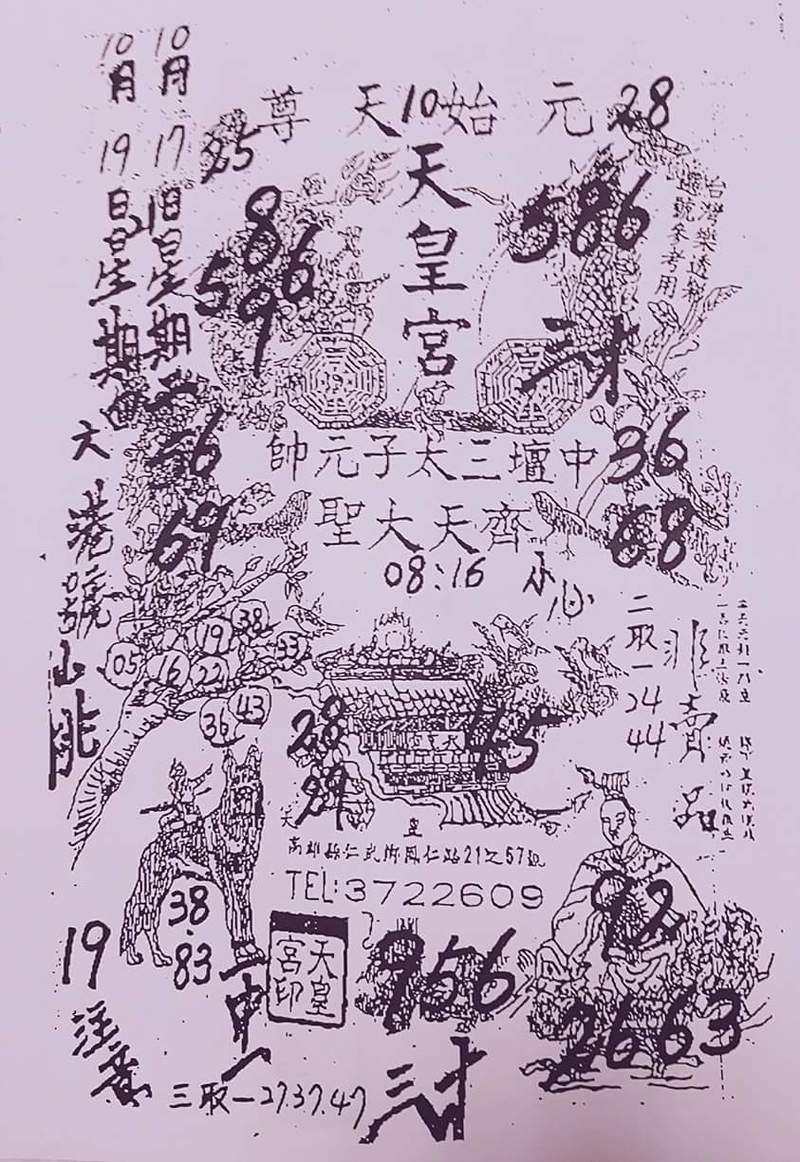 10月17日星期二
10月19日星期四
六港號
尊天10始元
28
25
天皇宮
586
三才
8
5 6
9
台灣樂透彩
選號參考用
56
69
帥元子太三壇中
36
聖大天齊
68
08:16
小心
二取一
24
44
非賣品
19
38
33
05
16
22
36
43
28
45
天
皇
高雄縣仁武鄉鳳仁路21之57號
TEL:3722609
38.83
一中一
天皇
宮印
19
注意
956
三才
92
2663
三取一27.37.47